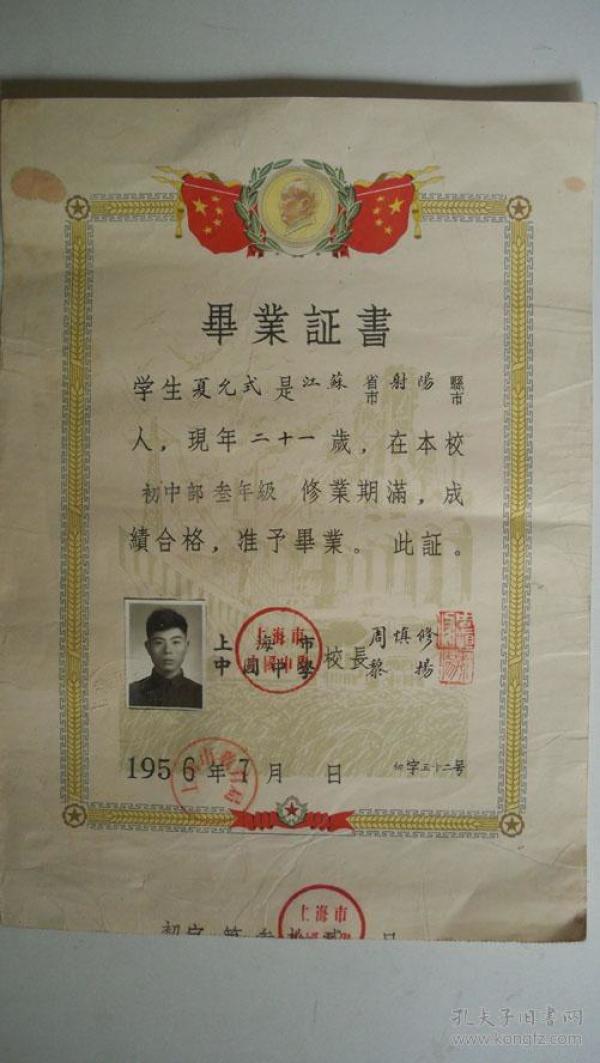 畢業証書
学生夏允式是江蘇省市射陽縣市
人，現年二十一歲，在本校
初中部叁年級 修業期滿，成
績合格，准予畢業。此証。
上海市
中國中學
校長
周慎修
黎揚
1956年7月 日
初字五十二号
上海市
初字第叁
孔夫子旧書网
www.kongfz.com